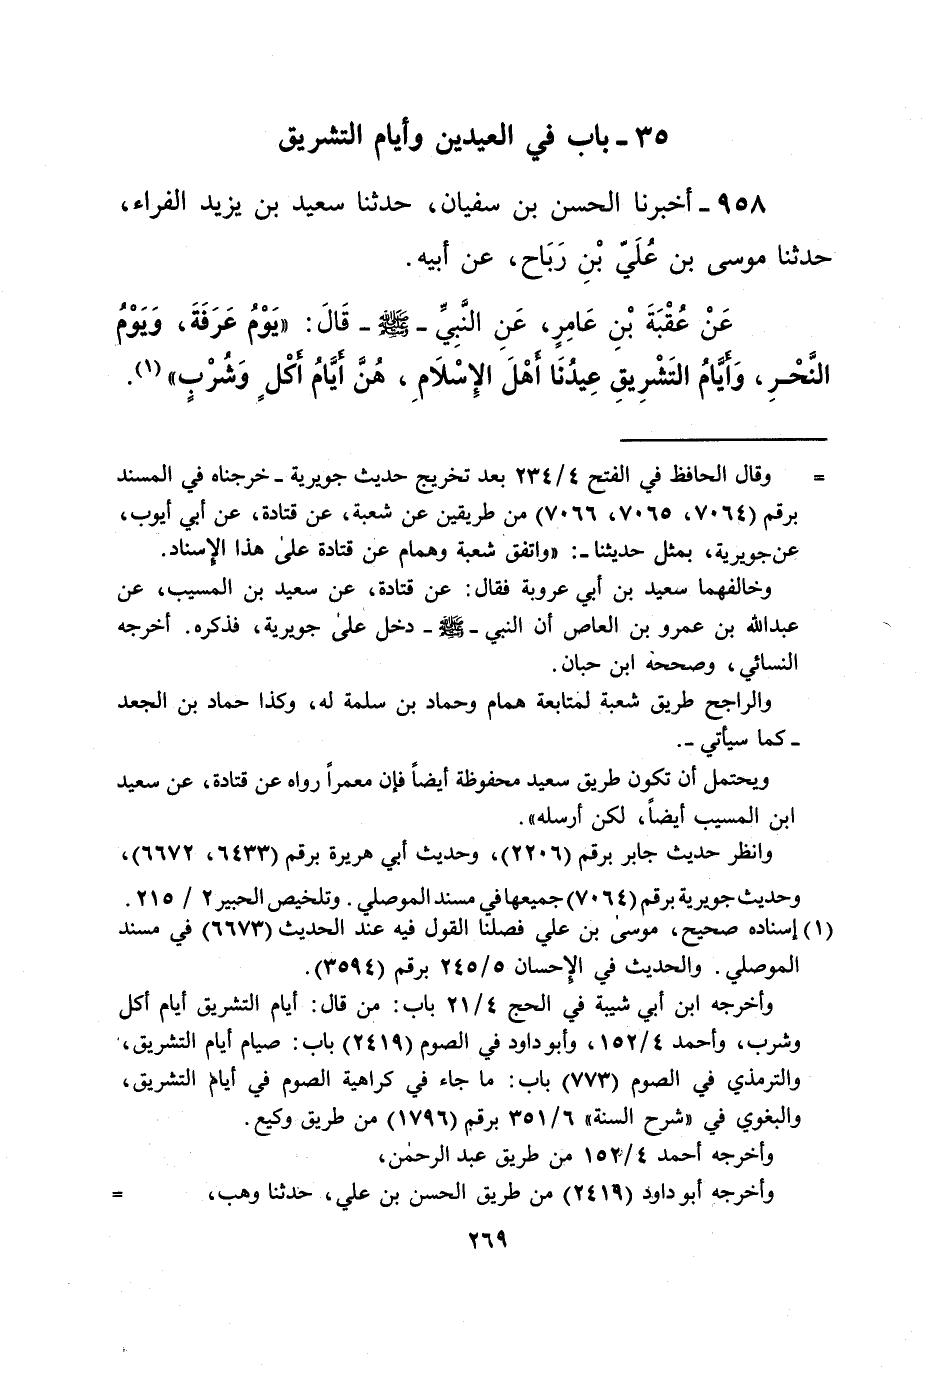 ٣٥ - باب في العيدين وأيام التشريق
٩٥٨ - أخبرنا الحسن بن سفيان، حدثنا سعيد بن يزيد الفراء،
حدثنا موسى بن عُلَيِّ بْنِ رَبَاح، عن أبيه.
عَنْ عُقْبَةَ بْنِ عَامِرٍ، عَنِ النَّبِيِّ - ﷺ - قَالَ: «يَوْمُ عَرَفَةَ، وَيَوْمُ
النَّحْرِ، وَأَيَّامُ التَشْرِيقِ عِيدُنَا أَهْلَ الإِسْلَامِ، هُنَّ أَيَّامُ أَكْلٍ وَشُرْبٍ»(١).
= وقال الحافظ في الفتح ٢٣٤/٤ بعد تخريج حديث جويرية - خرجناه في المسند
برقم (٧٠٦٤، ٧٠٦٥، ٧٠٦٦) من طريقين عن شعبة، عن قتادة، عن أبي أيوب،
عن جويرية، بمثل حديثنا -: «واتفق شعبة وهمام عن قتادة علىٰ هذا الإسناد.
وخالفهما سعيد بن أبي عروبة فقال: عن قتادة، عن سعيد بن المسيب، عن
عبدالله بن عمرو بن العاص أن النبي - ﷺ - دخل علىٰ جويرية، فذكره. أخرجه
النسائي، وصححه ابن حبان.
والراجح طريق شعبة لمتابعة همام وحماد بن سلمة له، وكذا حماد بن الجعد
- كما سيأتي -.
ويحتمل أن تكون طريق سعيد محفوظة أيضاً فإن معمراً رواه عن قتادة، عن سعيد
ابن المسيب أيضاً، لكن أرسله».
وانظر حديث جابر برقم (٢٢٠٦)، وحديث أبي هريرة برقم (٦٤٣٣، ٦٦٧٢)،
وحديث جويرية برقم (٧٠٦٤) جميعها في مسند الموصلي. وتلخيص الحبير ٢ / ٢١٥.
(١) إسناده صحيح، موسىٰ بن علي فصلنا القول فيه عند الحديث (٦٦٧٣) في مسند
الموصلي. والحديث في الإحسان ٢٤٥/٥ برقم (٣٥٩٤).
وأخرجه ابن أبي شيبة في الحج ٢١/٤ باب: من قال: أيام التشريق أيام أكل
وشرب، وأحمد ١٥٢/٤، وأبو داود في الصوم (٢٤١٩) باب: صيام أيام التشريق،
والترمذي في الصوم (٧٧٣) باب: ما جاء في كراهية الصوم في أيام التشريق،
والبغوي في «شرح السنة» ٣٥١/٦ برقم (١٧٩٦) من طريق وكيع.
وأخرجه أحمد ١٥٢/٤ من طريق عبد الرحمٰن،
وأخرجه أبو داود (٢٤١٩) من طريق الحسن بن علي، حدثنا وهب، =
٢٦٩